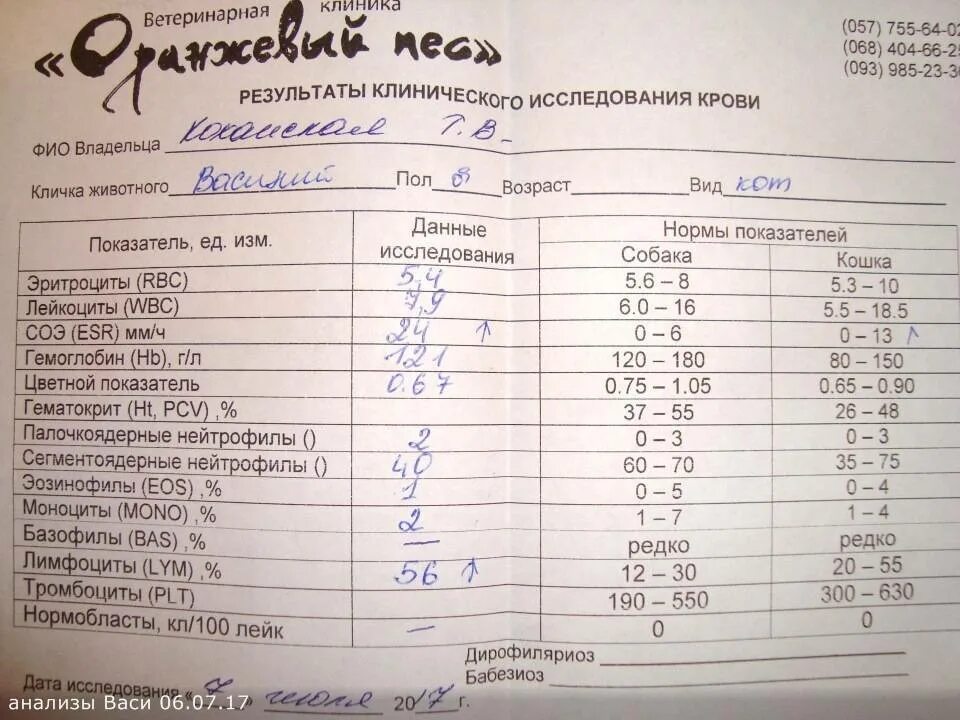 Ветеринарная клиника
«Оранжевый пес»
(057) 755-64-02
(068) 404-66-25
(093) 985-23-36
РЕЗУЛЬТАТЫ КЛИНИЧЕСКОГО ИССЛЕДОВАНИЯ КРОВИ
ФИО Владельца Коханская Т.В.
Кличка животного Василий Пол Возраст Вид кот
Показатель, ед. изм. Данные исследования Нормы показателей
Собака Кошка
Эритроциты (RBC) 5,4 5.6 – 8 5.3 – 10
Лейкоциты (WBC) 7,9 6.0 – 16 5.5 – 18.5
СОЭ (ESR) мм/ч 24 ↑ 0 – 6 0 – 13 ↑
Гемоглобин (Hb), г/л 121 120 – 180 80 – 150
Цветной показатель 0.67 0.75 – 1.05 0.65 – 0.90
Гематокрит (Ht, PCV) ,% 37 – 55 26 – 48
Палочкоядерные нейтрофилы () 2 0 – 3 0 – 3
Сегментоядерные нейтрофилы () 40 60 – 70 35 – 75
Эозинофилы (EOS) ,% 1 0 – 5 0 – 4
Моноциты (MONO) ,% 2 1 – 7 1 – 4
Базофилы (BAS) ,% — редко редко
Лимфоциты (LYM) ,% 56 ↑ 12 – 30 20 – 55
Тромбоциты (PLT) 190 – 550 300 – 630
Нормобласты, кл/100 лейк — 0 0
Дирофиляриоз
Бабезиоз
Дата исследования « 7 » июля 2017г.
анализы Васи 06.07.17